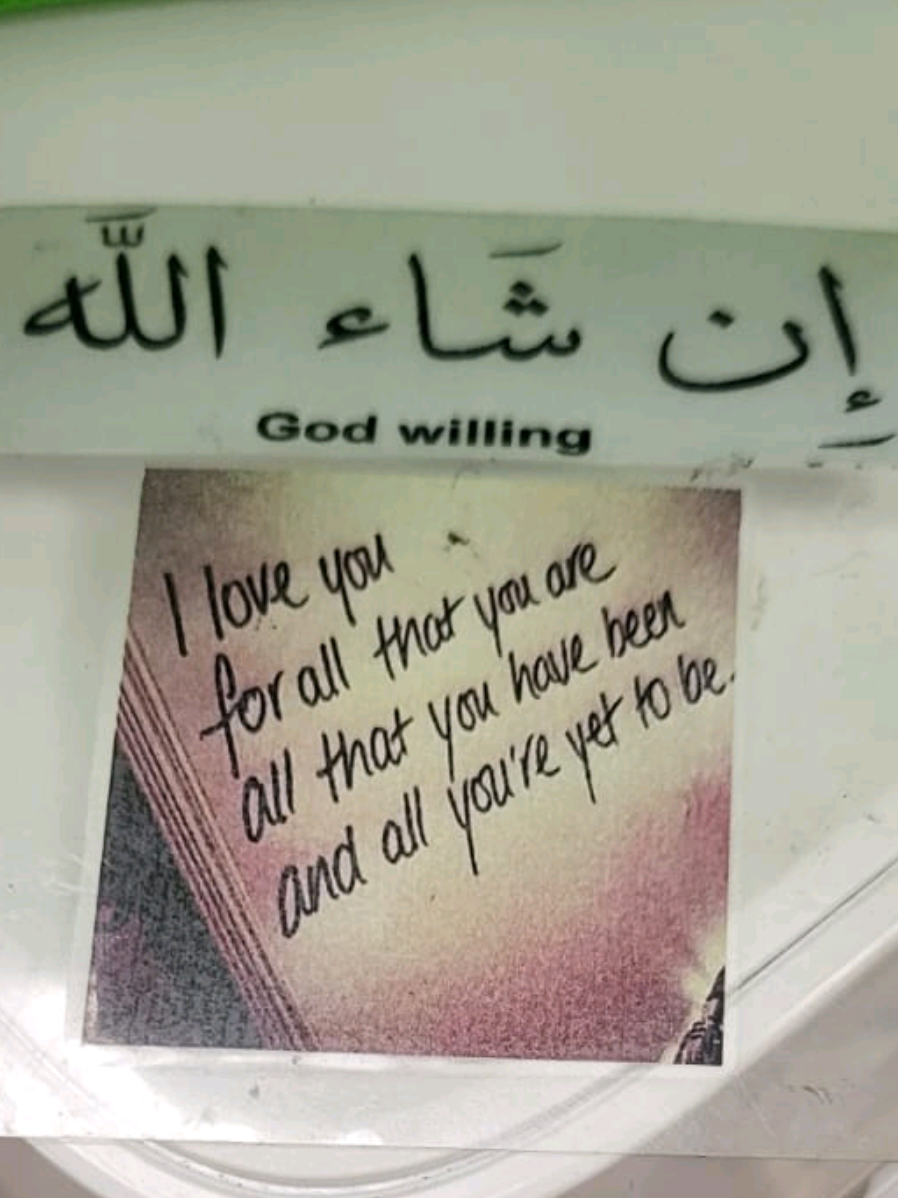 إِن شَاء اللَّه
God willing
I love you
for all that you are
all that you have been
and all you're yet to be.